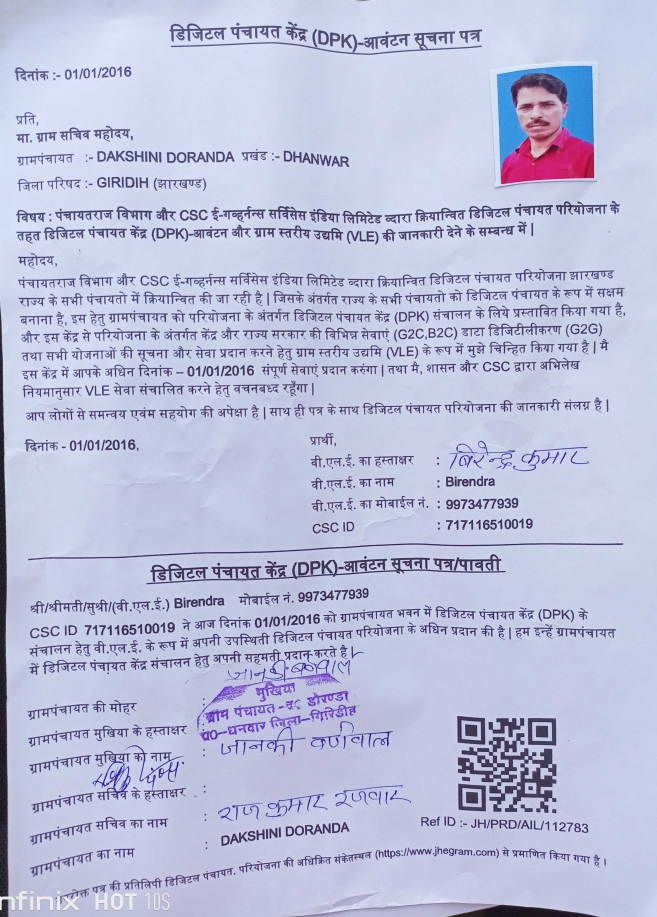 डिजिटल पंचायत केंद्र (DPK)-आवंटन सूचना पत्र
दिनांक :- 01/01/2016
प्रति,
मा. ग्राम सचिव महोदय,
ग्रामपंचायत :- DAKSHINI DORANDA प्रखंड :- DHANWAR
जिला परिषद :- GIRIDIH (झारखण्ड)
विषय : पंचायतराज विभाग और CSC ई-गव्हर्नन्स सर्विसेस इंडिया लिमिटेड व्दारा क्रियान्वित डिजिटल पंचायत परियोजना के
तहत डिजिटल पंचायत केंद्र (DPK)-आवंटन और ग्राम स्तरीय उद्यमि (VLE) की जानकारी देने के सम्बन्ध में |
महोदय,
पंचायतराज विभाग और CSC ई-गव्हर्नन्स सर्विसेस इंडिया लिमिटेड व्दारा क्रियान्वित डिजिटल पंचायत परियोजना झारखण्ड
राज्य के सभी पंचायतो में क्रियान्वित की जा रही है | जिसके अंतर्गत राज्य के सभी पंचायतो को डिजिटल पंचायत के रूप में सक्षम
बनाना है, इस हेतु ग्रामपंचायत को परियोजना के अंतर्गत डिजिटल पंचायत केंद्र (DPK) संचालन के लिये प्रस्तावित किया गया है,
और इस केंद्र से परियोजना के अंतर्गत केंद्र और राज्य सरकार की विभिन्न सेवाएं (G2C,B2C) डाटा डिजिटीलीकरण (G2G)
तथा सभी योजनाओं की सूचना और सेवा प्रदान करने हेतु ग्राम स्तरीय उद्यमि (VLE) के रूप में मुझे चिन्हित किया गया है | मै
इस केंद्र में आपके अधिन दिनांक – 01/01/2016 संपूर्ण सेवाएं प्रदान करुंगा | तथा मै, शासन और CSC द्वारा अभिलेख
नियमानुसार VLE सेवा संचालित करने हेतु वचनबध्द रहूँगा |
आप लोगों से समन्वय एवंम सहयोग की अपेक्षा है | साथ ही पत्र के साथ डिजिटल पंचायत परियोजना की जानकारी संलग्र है |
दिनांक - 01/01/2016,
प्रार्थी,
वी.एल.ई. का हस्ताक्षर : बिरेन्द्र कुमार
वी.एल.ई. का नाम : Birendra
वी.एल.ई. का मोबाईल नं. : 9973477939
CSC ID : 717116510019
डिजिटल पंचायत केंद्र (DPK)-आवंटन सूचना पत्र/पावती
श्री/श्रीमती/सुश्री/(वी.एल.ई.) Birendra मोबाईल नं. 9973477939
CSC ID 717116510019 ने आज दिनांक 01/01/2016 को ग्रामपंचायत भवन में डिजिटल पंचायत केंद्र (DPK) के
संचालन हेतु वी.एल.ई. के रूप में अपनी उपस्थिती डिजिटल पंचायत परियोजना के अधिन प्रदान की है | हम इन्हें ग्रामपंचायत
में डिजिटल पंचायत केंद्र संचालन हेतु अपनी सहमती प्रदान करते है |
जानकी बर्णवाल
ग्रामपंचायत की मोहर :
मुखिया
ग्राम पंचायत-द० डोरण्डा
प्र०-धनवार जिला-गिरिडीह
ग्रामपंचायत मुखिया के हस्ताक्षर
ग्रामपंचायत मुखिया का नाम : जानकी बर्णवाल
ग्रामपंचायत सचिव के हस्ताक्षर :
ग्रामपंचायत सचिव का नाम : राज कुमार रजवार
ग्रामपंचायत का नाम : DAKSHINI DORANDA
Ref ID :- JH/PRD/AIL/112783
पत्र की प्रतिलिपी डिजिटल पंचायत. परियोजना की अधिक्रित संकेतस्थल (https://www.jhegram.com) से प्रमाणित किया गया है |
nfinix HOT 10S